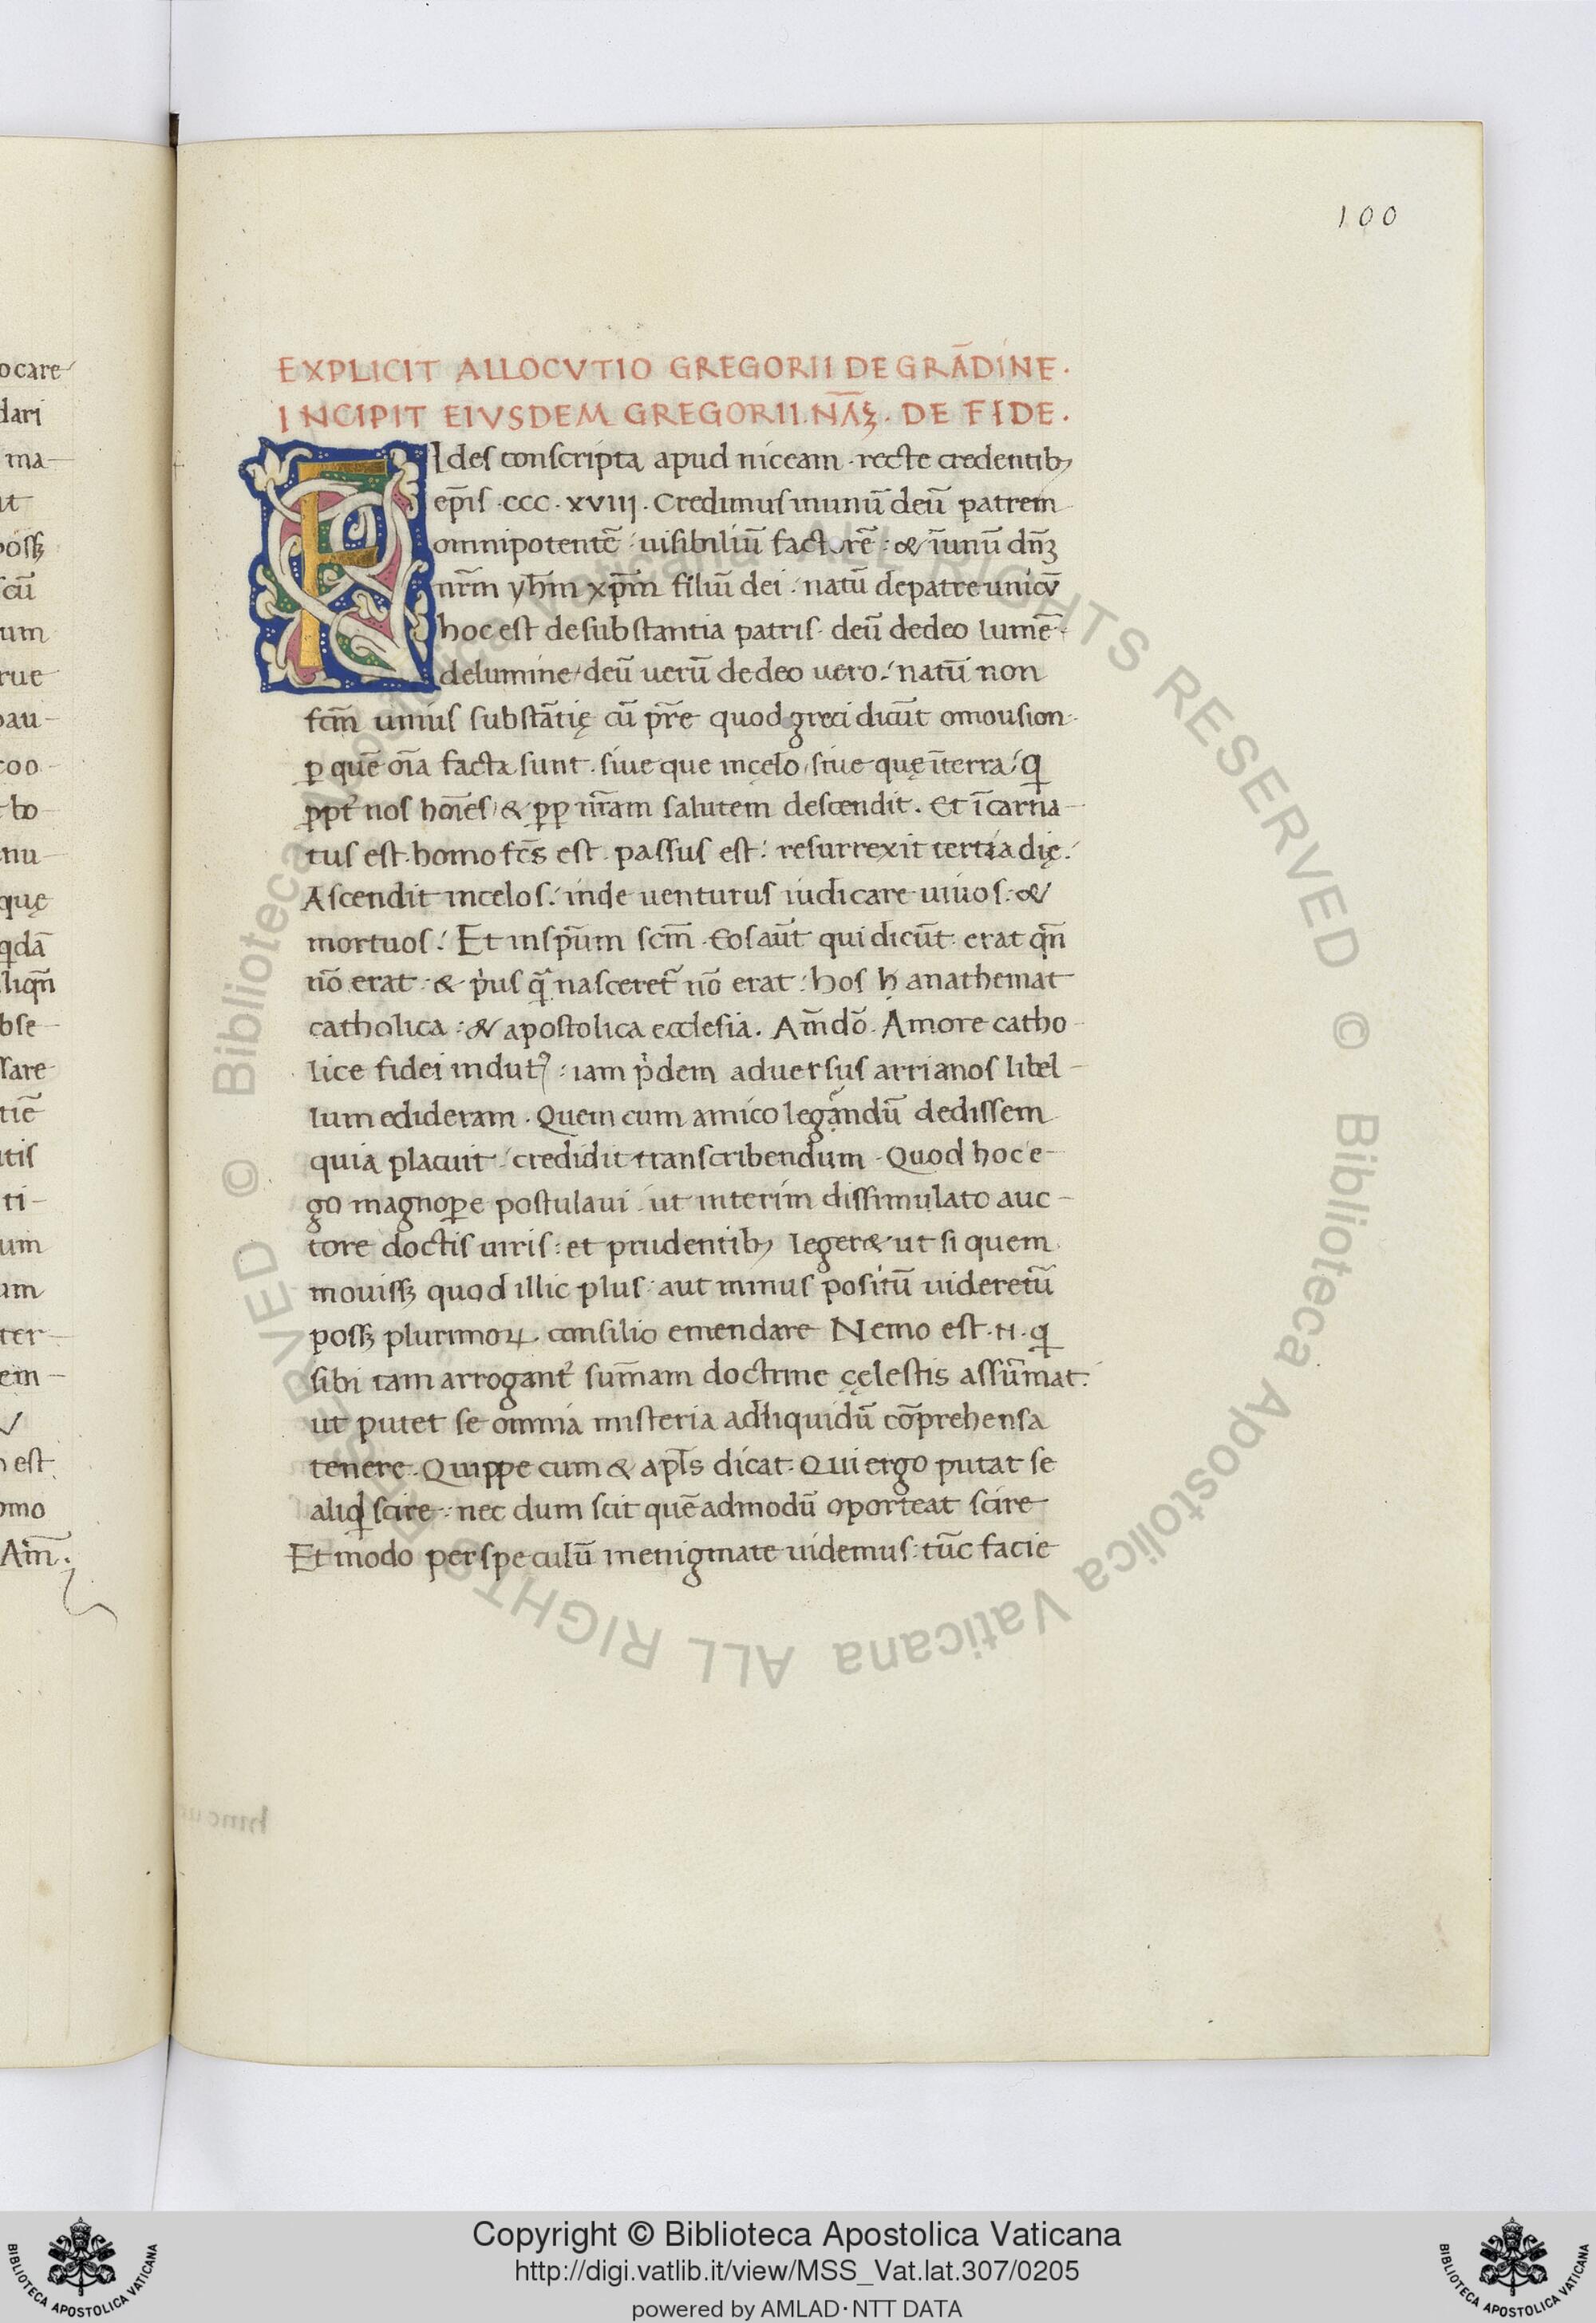 100
ocare
dari
ma-
ut
poss&
cū
um
rue
pau-
coo-
bo-
nu-
quę
qdā
liqn̄
bse-
ssare
tiē
utis
ti-
um
um
ter-
em-
est
omo
Am̄.
EXPLICIT ALLOCVTIO GREGORII DE GRĀDINE.
INCIPIT EIVSDEM GREGORII. NĀꝫ. DE FIDE.
FIdes conscripta apud niceam. recte credentibꝫ
ep̄is. ccc. xviij. Credimus inunū deū patrem
omnipotentē: uisibiliū factorē: & īunū dn̄ꝫ
nr̄m yh̄m xp̄m filiū dei: natū depatre unicū
hoc est desubstantia patris. deū dedeo lumē
delumine deū uerū dedeo uero: natū non
fcm̄ unius substātię cū pr̄e quod greci dicūt omousion.
ꝑ quē oīa facta sunt. siue que incęlo, siue quę īterra: ꝗ
ꝓpt̄ nos hoīes, & ꝓp nr̄am salutem descendit. Et īcarna-
tus est. homo fcs̄ est. passus est: resurrexit tertia dię:
Ascendit incelos: inde uenturus iudicare uiuos: &
mortuos: Et insp̄um scm̄. Eos aūt qui dicūt: erat qn̄
nō erat: & pͥus qͣ̄ nasceret᷑ nō erat: hos ħ anathemat
catholica: & apostolica ecclesia. Am̄dō. Amore catho-
lice fidei indutꝰ: iam pͥdem aduersus arrianos libel-
lum edideram. Quem cum amico legandū dedissem
quia placuit: credidit transcribendum. Quod hoc e-
go magnoꝑe postulaui: ut interim dissimulato auc-
tore doctis uiris: et prudentibꝫ leger&: ut si quem
mouissꝫ quod illic plus: aut minus positū uideretū
possꝫ plurimoꝝ. consilio emendare Nemo est. n. ꝗ
sibi tam arrogant̄ sum̄am doctrine cęlestis assūmat:
ut putet se omnia misteria adliquidū cōprehensa
tenere. Quippe cum & apl̄s dicat. Qui ergo putat se
aliꝗd scire: nec dum scit quēadmodū oporteat scire
Et modo perspeculū inenigmate uidemus: tūc facie
© Biblioteca Apostolica Vaticana ALL RIGHTS RESERVED © Biblioteca Apostolica Vaticana ALL RIGHTS RESERVED
Copyright © Biblioteca Apostolica Vaticana
http://digi.vatlib.it/view/MSS_Vat.lat.307/0205
powered by AMLAD·NTT DATA
BIBLIOTECA APOSTOLICA VATICANA
BIBLIOTECA APOSTOLICA VATICANA